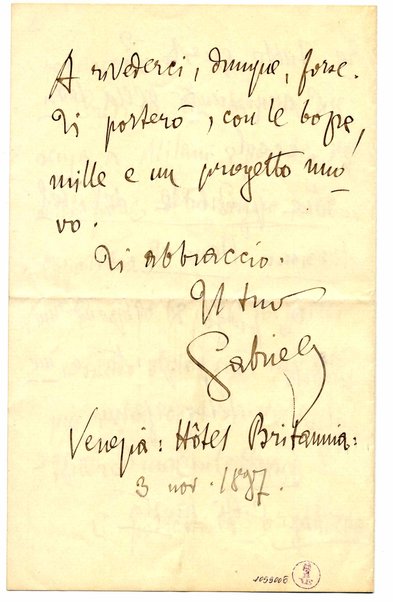 A rivederci, dunque, forse.
Ti porterò, con le bozze,
mille e un progetto nuo-
vo.
Ti abbraccio.
Il tuo
Gabriele
Venezia: Hôtel Britannia:
3 nov. 1897.